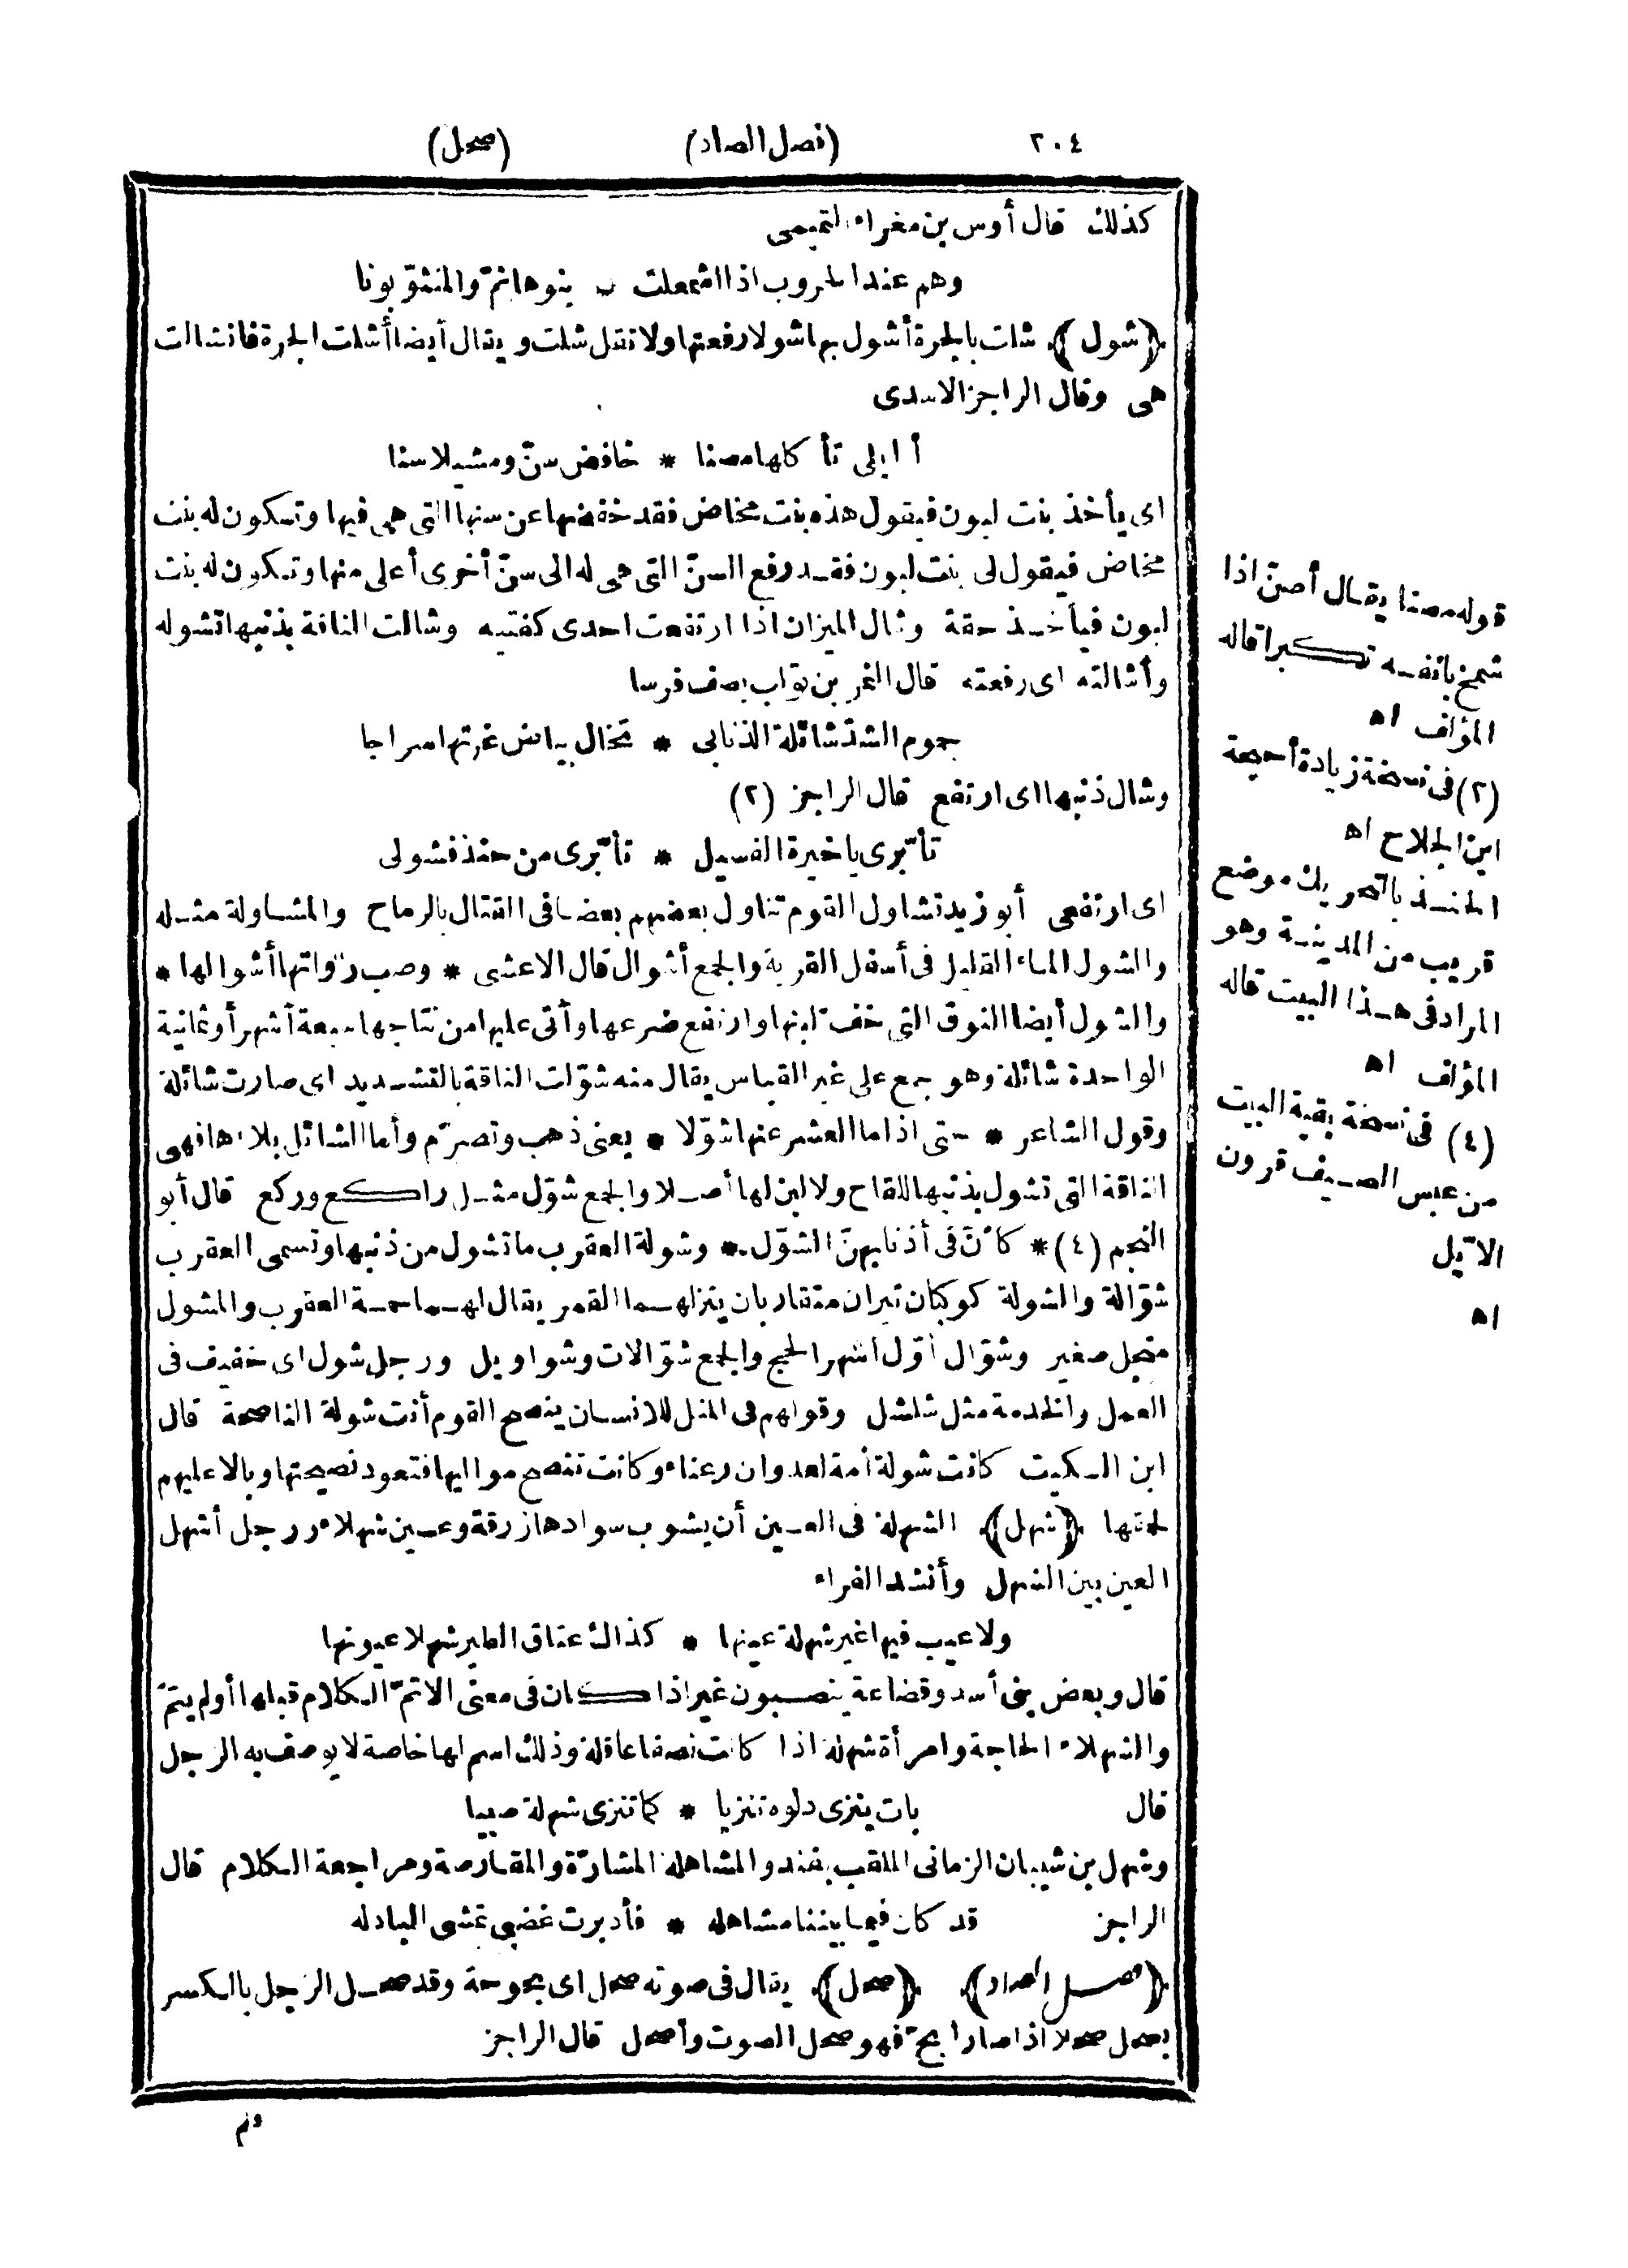 ٢٠٤ (فصل الصاد) (صحل)
كذلك قال أوس بن مغراء التميمى
وهم عند الحروب اذا اشمعلت * بنوها ثمّ والمتثوّبونا
﴿شول﴾ شلت بالجرة أشول بها شولا رفعتها ولا تقل شلت ويقال أيضا أشلت الجرة فانشالت
هى وقال الراجز الاسدى
أابلى تأكلها مصنا * خافض سنّ ومشيلا سنا
اى يأخذ بنت لبون فيقول هذه بنت مخاض فقد خفضها عن سنها التى هى فيها وتكون له بنت
مخاض فيقول لى بنت لبون فقد رفع السنّ التى هى له الى سنّ أخرى أعلى منها وتكون له بنت
لبون فيأخذ حقة وشال الميزان اذا ارتفعت احدى كفتيه وشالت الناقة بذنبها تشوله
وأشالته اى رفعته قال النمر بن تواب يصف فرسا
جموم الشدّ شائلة الذنابى * تخال بياض غرتها سراجا
وشال ذنبها اى ارتفع قال الراجز (٢)
تأبّرى يا خيرة الفسيل * تأبّرى من حنذ فشولى
اى ارتفعى أبو زيد تشاول القوم تناول بعضهم بعضا فى القتال بالرماح والمشاولة مثله
والشول الماء القليل فى أسفل القربة والجمع أشوال قال الاعشى * وصب رواتها أشوالها *
والشول أيضا النوق التى خفّ لبنها وارتفع ضرعها وأتى عليها من نتاجها سبعة أشهر أو ثمانية
الواحدة شائلة وهو جمع على غير القياس يقال منه شوّلت الناقة بالتشديد اى صارت شائلة
وقول الشاعر * حتى اذا ما العشر عنها شوّلا * يعنى ذهب وتصرّم وأما الشائل بلا هاء فهى
الناقة التى تشول بذنبها للقاح ولا لبن لها أصلا والجمع شوّل مثل راكع وركع قال أبو
النجم (٤) * كأنّ فى أذنابهنّ الشوّل * وشولة العقرب ما تشول من ذنبها وتسمى العقرب
شوّالة والشولة كوكبان نيران متقاربان ينزلهما القمر يقال لهما حمة العقرب والمشول
منجل صغير وشوّال أوّل أشهر الحج والجمع شوّالات وشواويل ورجل شول اى خفيف فى
العمل والخدمة مثل شلشل وقولهم فى المثل للانسان ينصح القوم أنت شولة الناصحة قال
ابن السكيت كانت شولة أمة لعدوان رعناء وكانت تنصح مواليها فتعود نصيحتها وبالا عليهم
لحمقها ﴿شهل﴾ الشهلة فى العين أن يشوب سوادها زرقة وعين شهلاء ورجل أشهل
العين بين الشهل وأنشد الفراء
ولا عيب فيها غير شهلة عينها * كذاك عتاق الطير شهلا عيونها
قال وبعض بنى أسد وقضاعة ينصبون غير اذا كان فى معنى الا تمّ الكلام قبلها أو لم يتمّ
والشهلاء الحاجة وامرأة شهلة اذا كانت نصفا عاقلة وذلك اسم لها خاصة لا يوصف به الرجل
قال بات ينزى دلوه تنزيا * كما تنزى شهلة صبيا
وشهل بن شيبان الزمانى الملقب بفند والمشاهلة المشارّة والمقارصة ومراجعة الكلام قال
الراجز قد كان فيما بيننا مشاهله * فأدبرت غضبى تمشى البادله
﴿فصل الصاد﴾ ﴿صحل﴾ يقال فى صوته صحل اى بحوحة وقد صحل الرجل بالكسر
يصحل صحلا اذا صار ابحّ فهو صحل الصوت وأصحل قال الراجز
قوله مصنا يقال أصنّ اذا
شمخ بانفه تكبرا قاله
المؤلف اه
(٢) فى نسخة زيادة أحيحة
ابن الجلاح اه
الحنذ بالتحريك موضع
قريب من المدينة وهو
المراد فى هذا البيت قاله
المؤلف اه
(٤) فى نسخة بقية البيت
من عبس الصيف قرون
الايّل
اه